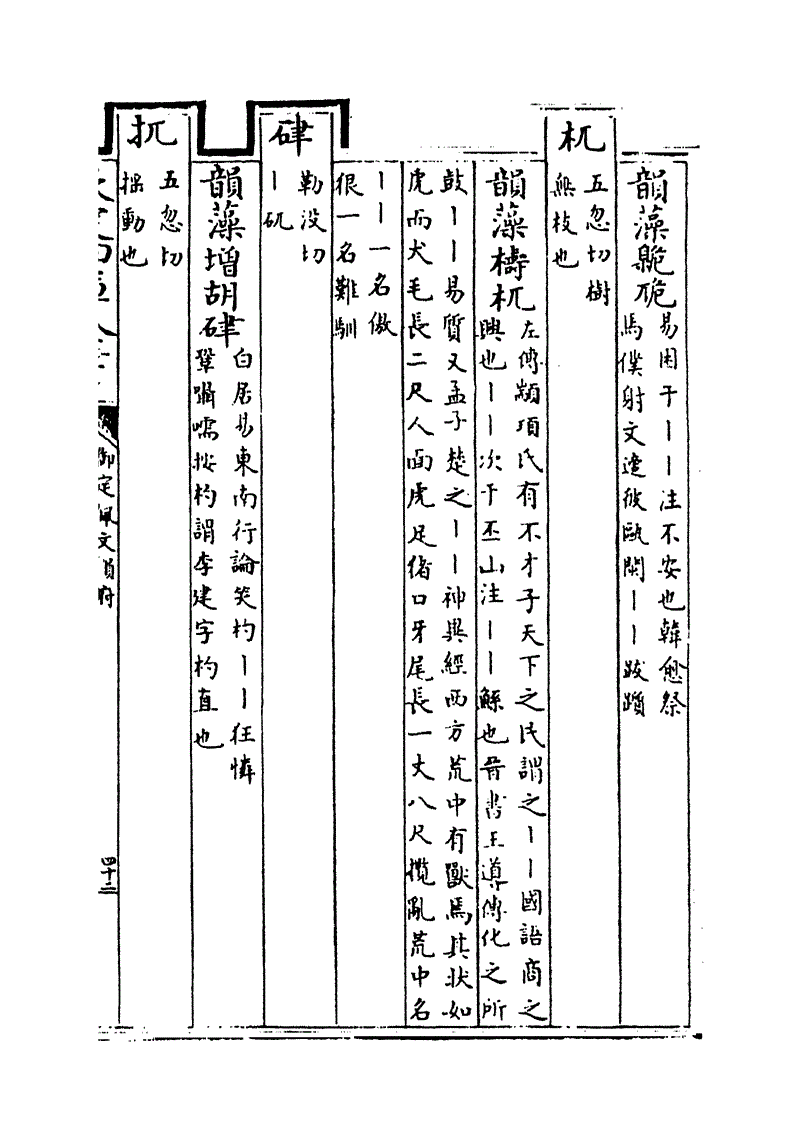 韻藻臲卼
易困于丨丨注不安也韓愈祭
馬僕射文遭彼毆鬨丨丨跋躓
杌
五忽切樹
無枝也
韻藻檮杌
左傳顓頊氏有不才子天下之民謂之丨丨國語商之
興也丨丨次于丕山注丨丨鯀也晉書王導傳化之所
鼓丨丨易質又孟子楚之丨丨神異經西方荒中有獸焉其狀如
虎而犬毛長二尺人面虎足豬口牙尾長一丈八尺攪亂荒中名
丨丨一名傲
很一名難馴
硉
勒没切
丨矶
韻藻增胡硉
白居易東南行論笑杓丨丨狂憐
鞏囁嚅按杓謂李建字杓直也
扤
五忽切
揺動也
御定佩文韻府
四十二